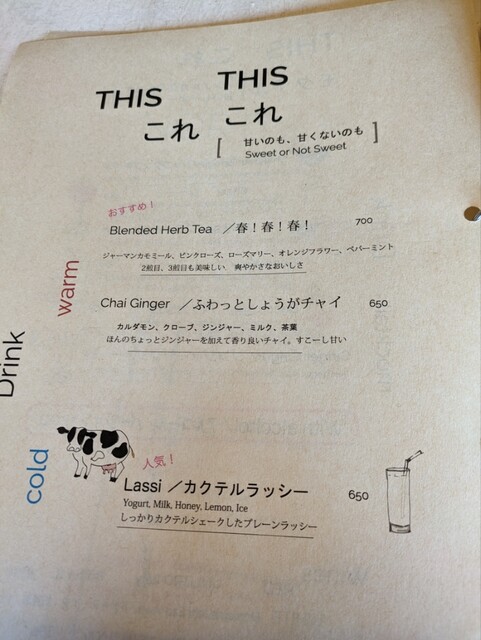 THIS THIS
これ これ
[ 甘いのも、甘くないのも ]
Sweet or Not Sweet
おすすめ！
Blended Herb Tea ／春！春！春！ 700
ジャーマンカモミール、ピンクローズ、ローズマリー、オレンジフラワー、ペパーミント
2煎目、3煎目も美味しい 爽やかさなおいしさ
warm
Chai Ginger ／ふわっとしょうがチャイ 650
カルダモン、クローブ、ジンジャー、ミルク、茶葉
ほんのちょっとジンジャーを加えて香り良いチャイ。すこーし甘い
Drink
cold
人気！
Lassi ／カクテルラッシー 650
Yogurt, Milk, Honey, Lemon, Ice
しっかりカクテルシェークしたプレーンラッシー